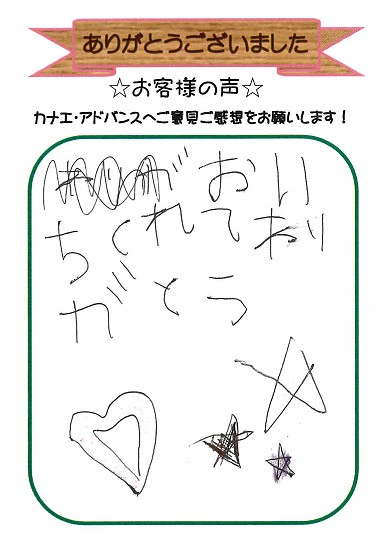 ありがとうございました
☆お客様の声☆
カナエ・アドバンスへご意見ご感想をお願いします！
が おい
ちくれて あり
がとう